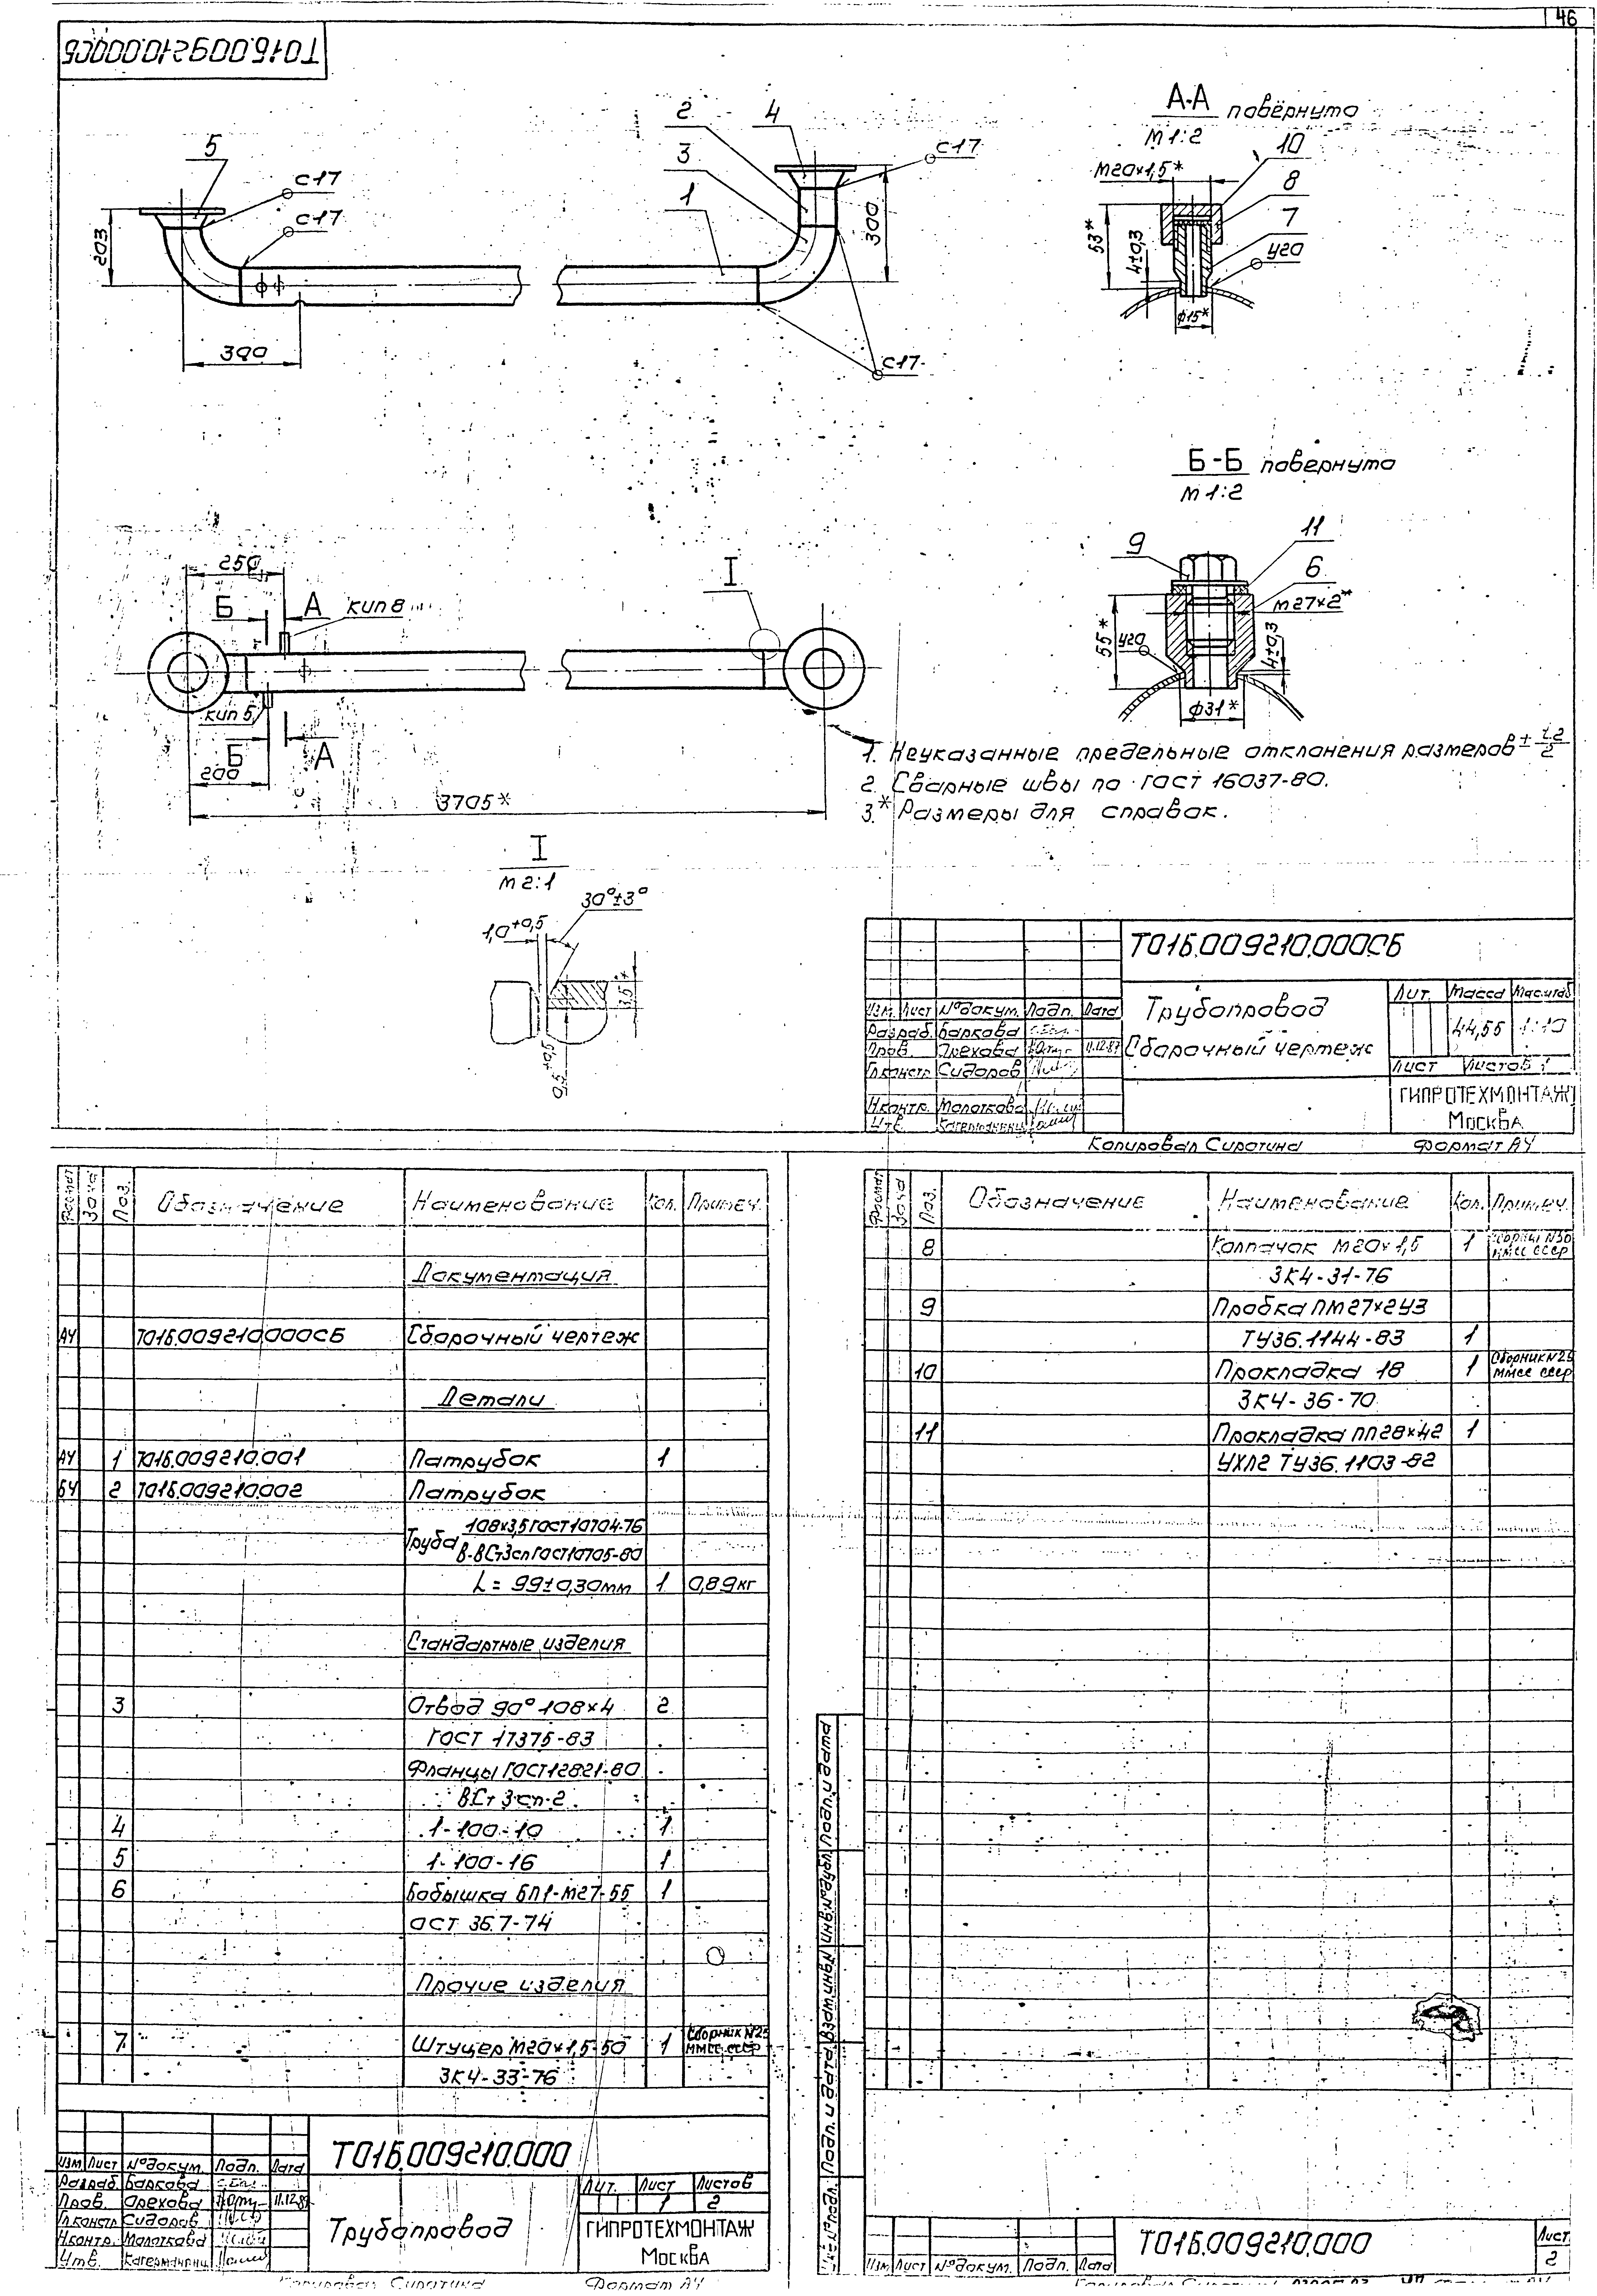 46
Т01Б.009210.000СБ
5
С17
С17
203
300
2
4
3
1
С17
300
С17
А-А повёрнуто
М 1:2
М20×1,5*
10
8
7
У20
53*
4±0,3
ф15*
Б-Б повернуто
М 1:2
9
11
6
М27×2*
55*
У20
4±0,3
ф31*
250
Б
А
КИП 8
I
КИП 5
Б
А
200
3705*
1. Неуказанные предельные отклонения размеров ± t2/2
2. Сварные швы по ГОСТ 16037-80.
3.* Размеры для справок.
I
М 2:1
30°±3°
1,0+0,5
3,5*
0,5+0,5
Т01Б.009210.000СБ
Трубопровод
Сборочный чертеж
Лит. Масса Масштаб
44,55 1:10
Лист Листов 1
ГИПРОТЕХМОНТАЖ
Москва
Изм. Лист №докум. Подп. Дата
Разраб. Баркова
Пров. Орехова 11.12.87
Гл.констр. Сидоров
Н.контр. Молоткова
Утв.
Копировал Сиротина Формат А4
Формат Зона Поз. Обозначение Наименование Кол. Примеч.
Документация
А4 Т01Б.009210.000СБ Сборочный чертеж
Детали
А4 1 Т01Б.009210.001 Патрубок 1
БЧ 2 Т01Б.009210.002 Патрубок
Труба 108×3,5 ГОСТ 10704-76
В-ВСт3сп ГОСТ 10705-80
L = 99±0,30мм 1 0,89кг
Стандартные изделия
3 Отвод 90° 108×4 2
ГОСТ 17375-83
Фланцы ГОСТ 12821-80
ВСт 3сп-2
4 1-100-10 1
5 1-100-16 1
6 Бобышка БП1-М27-55 1
ОСТ 36.7-74
Прочие изделия
7 Штуцер М20×1,5-50 1 Сборник №25
ММСС СССР
ЗК4-33-76
Т01Б.009210.000
Изм Лист №докум. Подп. Дата
Разраб. Баркова
Пров. Орехова 11.12.87
Гл.констр. Сидоров
Н.контр. Молоткова
Утв.
Трубопровод
Лит. Лист Листов
1 2
ГИПРОТЕХМОНТАЖ
Москва
Копировал Сиротина Формат А4
Формат Зона Поз. Обозначение Наименование Кол. Примеч.
8 Колпачок М20×1,5 1 Сборник №30
ММСС СССР
ЗК4-31-76
9 Пробка ПМ27×2У3
ТУ36.1144-83 1
10 Прокладка 18 1 Сборник №25
ММСС СССР
ЗК4-36-70
11 Прокладка ПП28×42 1
УХЛ2 ТУ36.1103-82
Инв.№подл. Подп. и дата Взам.инв.№ Инв.№дубл. Подп. и дата
Изм Лист №докум. Подп. Дата
Т01Б.009210.000
Лист
2